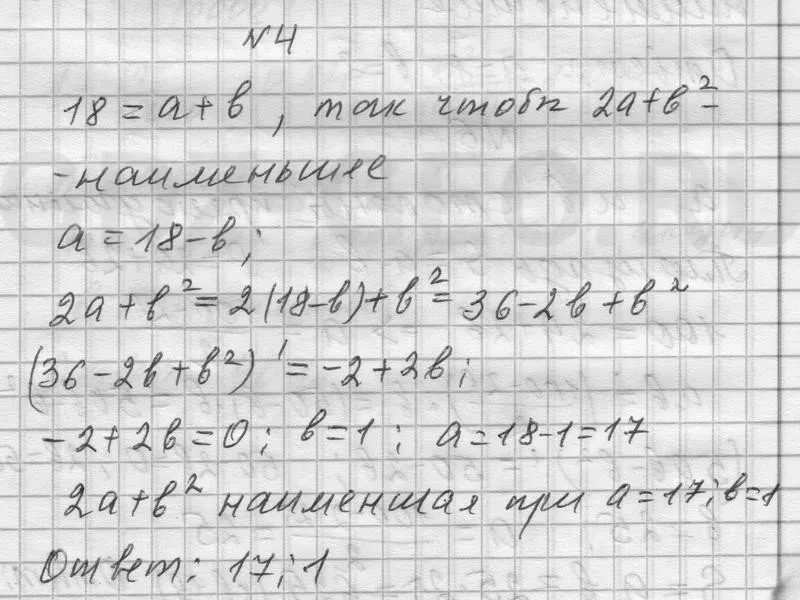 №4
18 = a + b, так чтобы 2a + b² –
– наименьшее
a = 18 – b;
2a + b² = 2(18 – b) + b² = 36 – 2b + b²
(36 – 2b + b²)' = –2 + 2b;
–2 + 2b = 0; b = 1; a = 18 – 1 = 17
2a + b² наименшая при a = 17; b = 1
Ответ: 17; 1